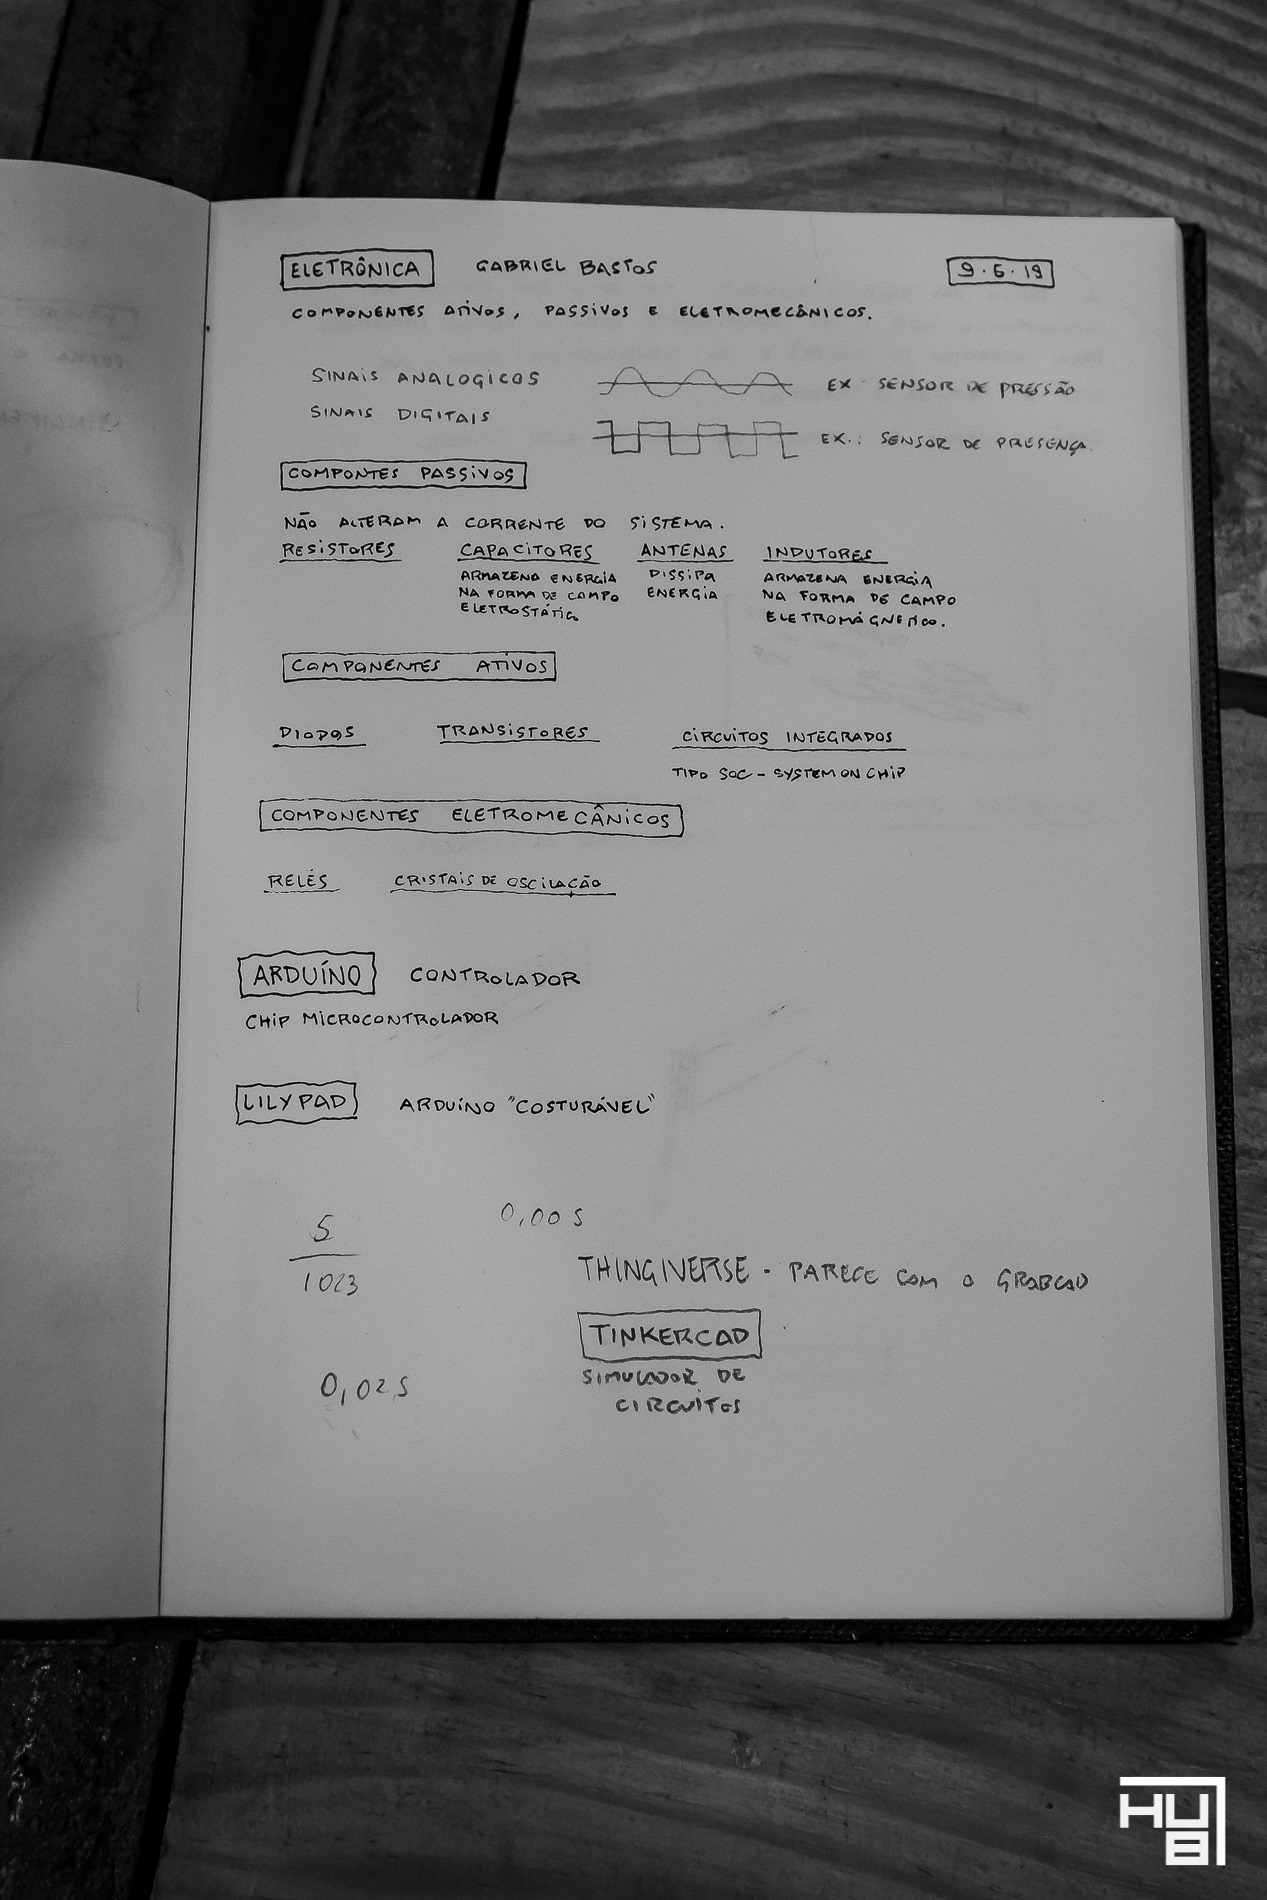 ELETRÔNICA GABRIEL BASTOS 9.5.19
COMPONENTES ATIVOS, PASSIVOS E ELETROMECÂNICOS.
SINAIS ANALOGICOS EX: SENSOR DE PRESSÃO
SINAIS DIGITAIS EX.: SENSOR DE PRESENÇA.
COMPONTES PASSIVOS
NÃO ALTERAM A CORRENTE DO SISTEMA.
RESISTORES CAPACITORES ANTENAS INDUTORES
ARMAZENA ENERGIA DISSIPA ARMAZENA ENERGIA
NA FORMA DE CAMPO ENERGIA NA FORMA DE CAMPO
ELETROSTÁTICO ELETROMÁGNETICO.
COMPONENTES ATIVOS
DIODOS TRANSISTORES CIRCUITOS INTEGRADOS
TIPO SOC - SYSTEM ON CHIP
COMPONENTES ELETROMECÂNICOS
RELÉS CRISTAIS DE OSCILAÇÃO
ARDUÍNO CONTROLADOR
CHIP MICROCONTROLADOR
LILYPAD ARDUÍNO "COSTURÁVEL"
5
1023
0,005
THINGIVERSE - PARECE COM O GRABCAD
TINKERCAD
SIMULADOR DE
CIRCUITOS
0,025
HUB